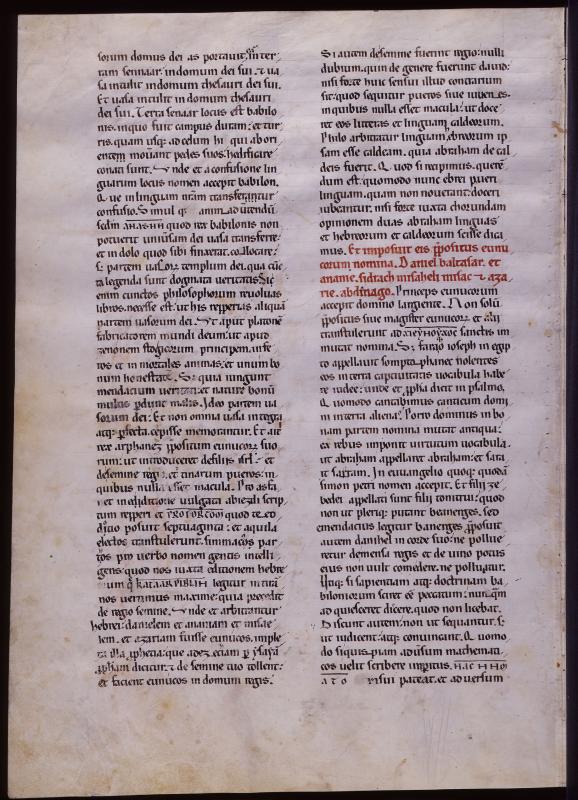 sorum domus dei as portauit in ter
ram sennaar in domum dei sui. ⁊ ua
sa intulit in domum thesauri dei sui.
Et uasa intulit in domum thesauri
dei sui. Terra senaar locus est babilo
nis. in quo fuit campus duram. et tur
ris. quam usq; ad celum hi qui ab ori
entem mouerant pedes suos. hedificare
conati sunt. Vnde et a confusione lin
guarum locus nomen accepit babilon.
Que in linguam nrãm transfertur
confusio. Simul q; animaduertendũ
scdm quod rex babilonis non
potuerit uniuersam dei uasa transferre.
et in dolo quod sibi finxerat. collocare:
s; partem uasorũ templum dei. qua cũc
ta legenda sunt dogmata ueritatis. Sic
enim cunctos philosophorum reuoluas
libros. necesse est. ut his repperias aliquã
partem uasorum dei. Vt apud platonẽ
fabricatorem mundi deum. ut apud
zenonem stogicorum principem. infe
ros et in mortales animas. et unum bo
num honestatẽ. S; quia iungunt
mendacium ueritati. et nature bonũ
multis perdunt malis. Ideo partem ua
sorum dei. Et non omnia uasa integra
atq; perfecta cepisse memorantur. Et ait
rex arphanez ppositum eunucorũ suo
rum. ut introduceret de filiis isrl. et
de semine regio. et tirannorum pueros. in
quibus nulla esset macula. Pro asfa
nez in editione uulgata abiezdi scrip
tum repperi et quod te.o.
dotio posuit septuaginta. et aquila
electos transtulerunt. simmacos par
tos pro uerbo nomen gentis intelli
gens. quod nos iuxta editionem hebre
orum legitur in turã
nos uertimus maxime. quia precedit
de regio semine. Vnde et arbitrantur
hebrei. danielem et ananiam et misae
lem. et azariam fuisse eunucos. imple
ta illa prophetia. que ad ezeciam per ysaiã
pphãm dicitur. ⁊ de semine tuo tollent.
et facient eunucos in domum regis.
Si autem de semine fuerint regio. nulli
dubium. quin de genere fuerint dauid.
nisi forte huic sensui illud contrarium
sit. quod sequitur pueros siue iubenes.
in quibus nulla esset macula. ut doce
ret eos litteras et linguam caldeorum.
Philo arbitratur linguam ebreorum ip
sam esse caldeam. quia abraham de cal
deis fuerit. Quod si recipimus. queren
dum est. quomodo nunc ebrei pueri
linguam. quam non nouerant. doceri
iubeantur. nisi forte iuxta chorundam
opinionem duas abraham linguas
et hebreorum et caldeorum scisse dica
mus. Et imposuit eis ppositus eunu
corum nomina. Daniel baltasar. et
aname. sidrach misaheli misac ⁊ aza
rie. abdinago. Princeps eunucorum
accepit domino largiente. Non solũ
ppositus siue magister eunucorũ et alij
transtulerunt ad sanctis im
mutat nomina. S; farao ioseph in egip
to appellauit somptophanec nolentes
eos in terra captiuitatis uocabula habe
re iudee. unde et ppha dicit in psalmo.
Quomodo cantabimus canticum domi
ni in terra aliena. Porro dominus in bo
nam partem nomina mutat antiqua.
ex rebus imponit uirtutum uocabula.
ut abraham appellaret abraham. et sara
ut sarram. In euuangelio quoq; quodã
simon petri nomen accepit. Et filij ze
bedei appellati sunt filij tonitrui. quod
non ut pleriq; putant baenerges. sed
emendacius legitur banerges. pposuit
autem danihel in corde suo. ne pollue
retur de mensa regis et de uino potus
eius non uult comedere. ne polluatur.
Vtiq; si sapientiam atq; doctrinam ba
biloniorum sciret eẽ peccatum. nunquam
ad quiesceret dicere. quod non licebat.
Discunt autem. non ut sequantur. s;
ut iudicent. atq; conuincant. Quomo
do si quispiam ad usum mathemati
cos uelit scribere imperitus.
risui pateat. et aduersum